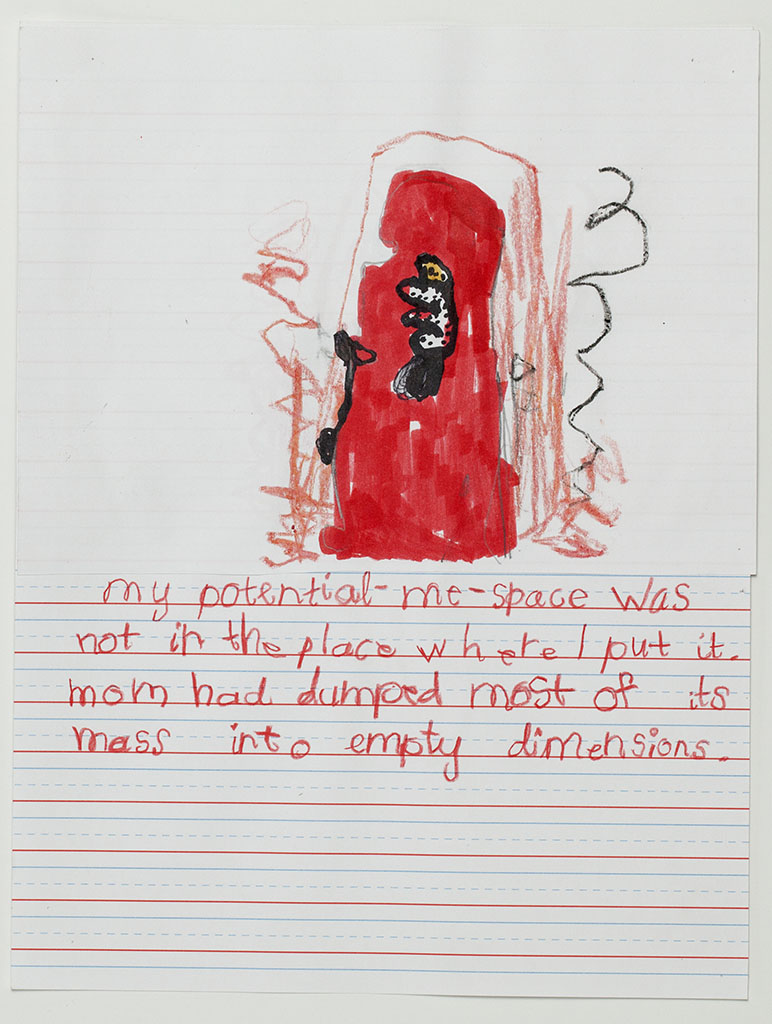 my potential-me-space was
not in the place where I put it.
mom had dumped most of its
mass into empty dimensions.